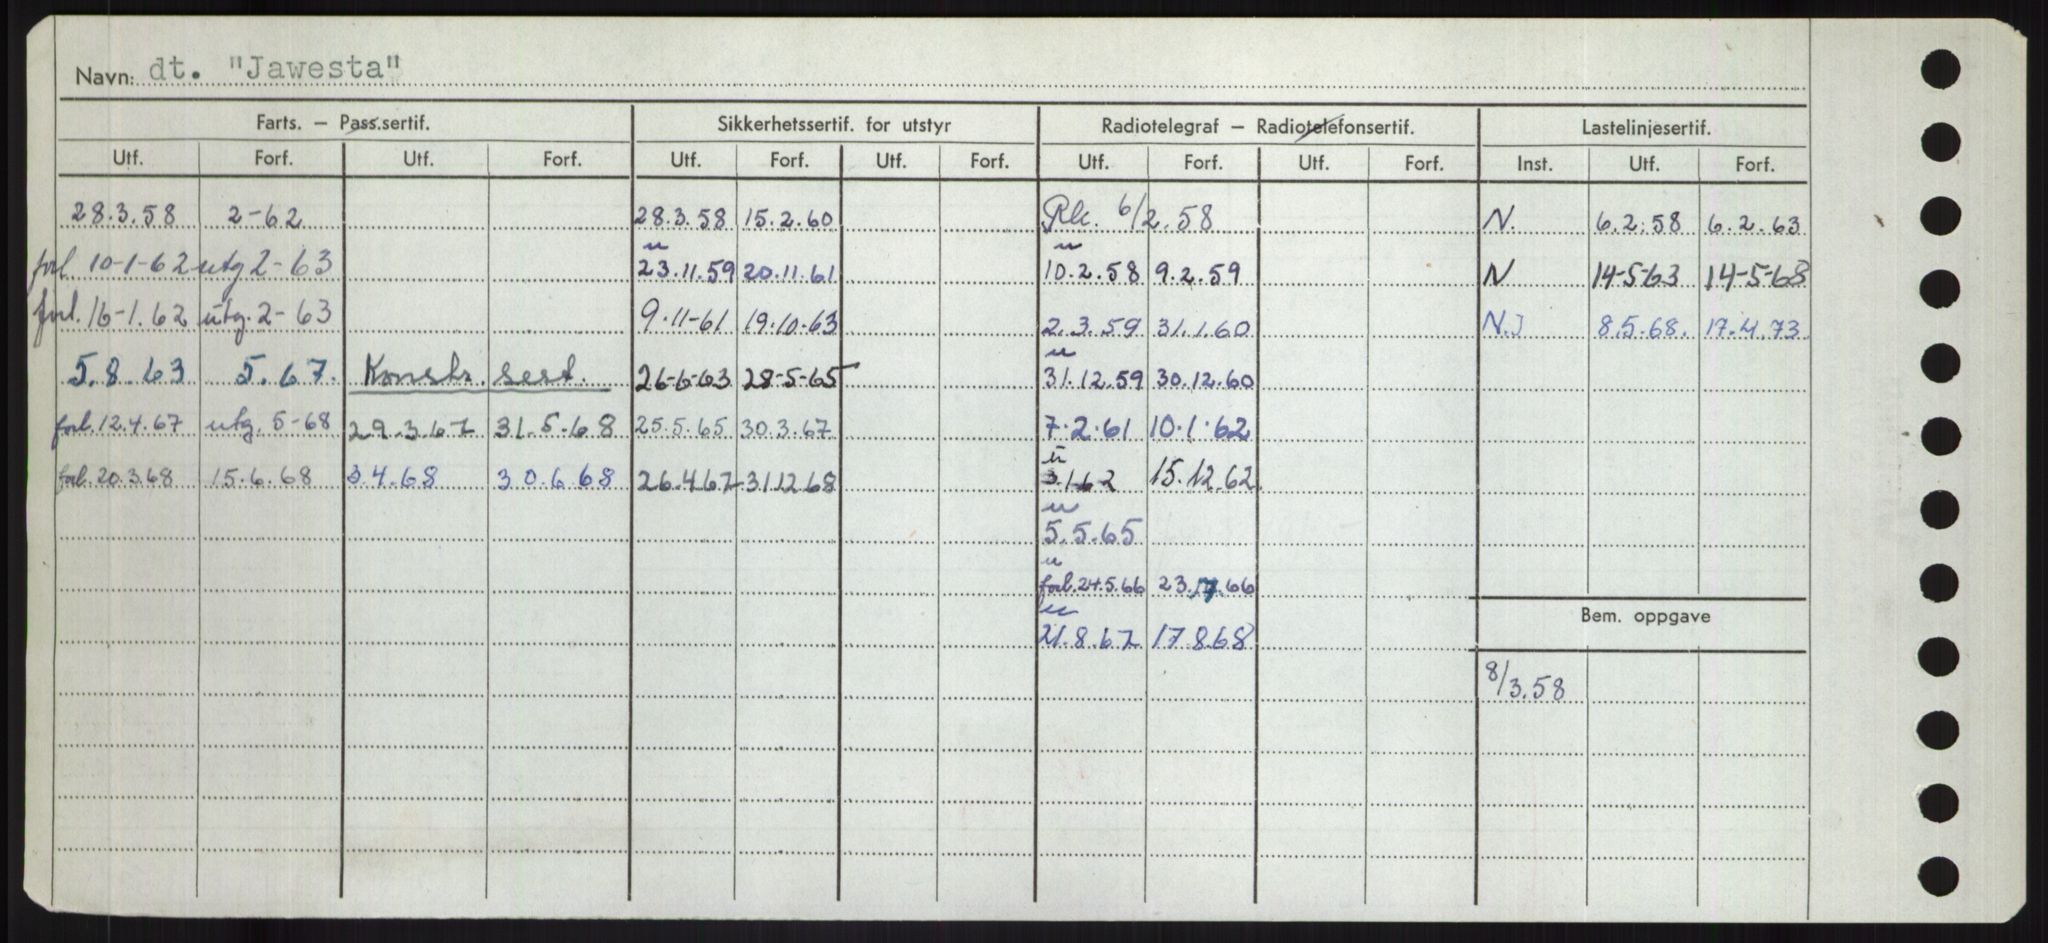 Navn: dt. "Jawesta"
Farts. — Pass.sertif. Sikkerhetssertif. for utstyr Radiotelegraf — Radiotelefonsertif. Lastelinjesertif.
Utf. Forf. Utf. Forf. Utf. Forf. Utf. Forf. Utf. Forf. Utf. Forf. Inst. Utf. Forf.
28.3.58 2-62 28.3.58 15.2.60 Rk. 6/2.58 N. 6.2.58 6.2.63
forl 10-1-62 utg 2-63 23.11.59 20.11.61 10.2.58 9.2.59 N 14-5-63 14-5-68
forl. 16-1.62 utg. 2-63 9.11-61 19.10.63 2.3.59 31.1.60 N.I 8.5.68. 17.4.73
5.8.63 5.67. Konstr. sert. 26-6-63 28-5-65 31.12.59 30.12.60
forl. 12.4.67 utg. 5-68 29.3.67 31.5.68 25.5.65 30.3.67 7.2.61 10.1.62
forl. 20.3.68 15.6.68 3.4.68 30.6.68 26.4.67 31.12.68 3.1.62 15.12.62
5.5.65
forl. 24.5.66 23.7.66
21.8.67 17.8.68
Bem. oppgave
8/3.58